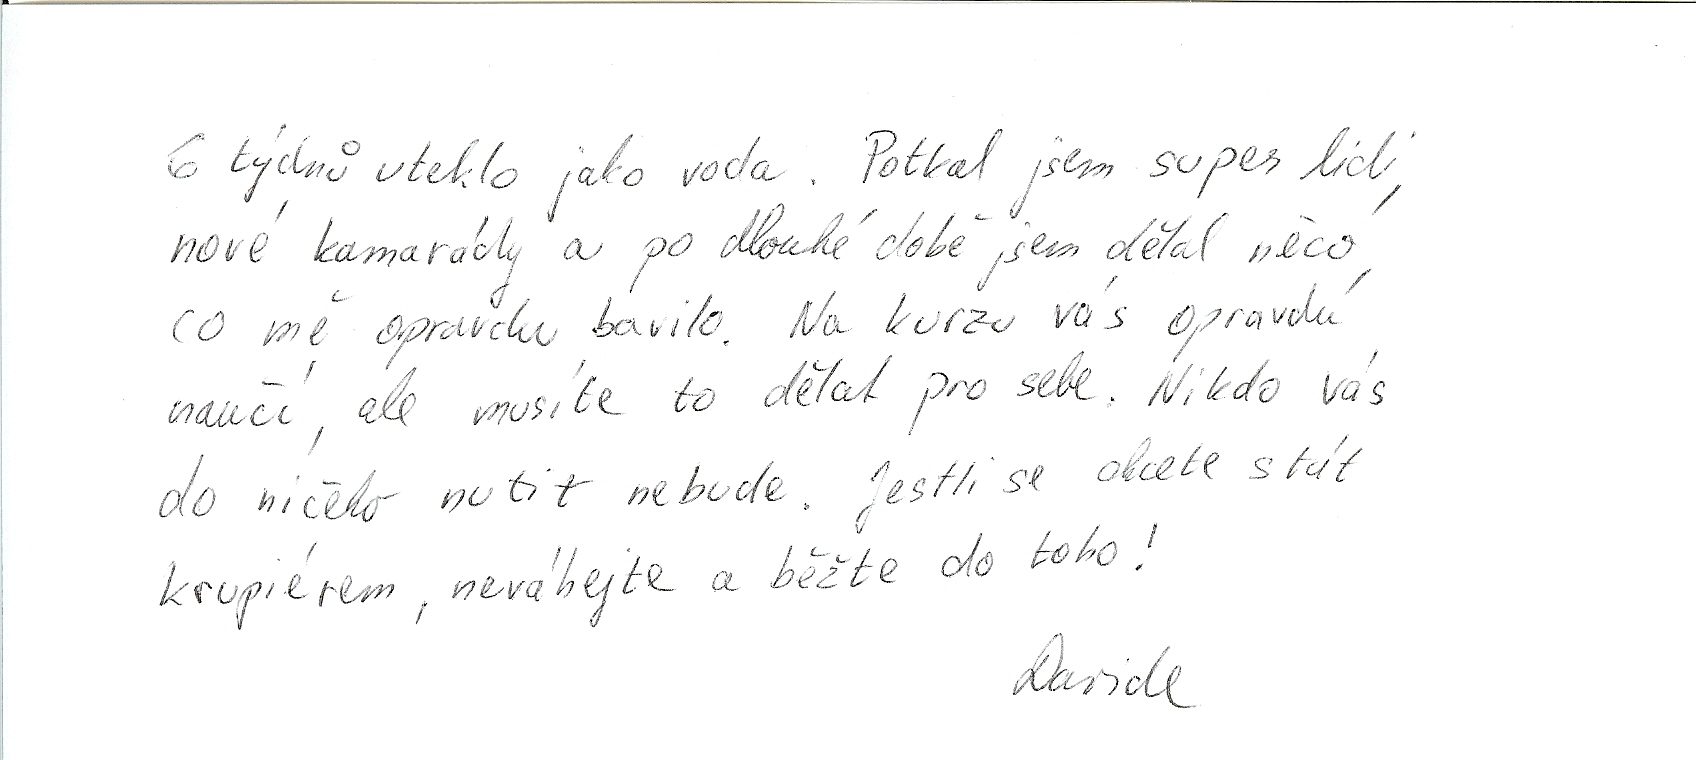 6 týdnů uteklo jako voda. Potkal jsem super lidi,
nové kamarády a po dlouhé době jsem dělal něco,
co mě opravdu bavilo. Na kurzu vás opravdu
naučí, ale musíte to dělat pro sebe. Nikdo vás
do ničeho nutit nebude. Jestli se chcete stát
krupiérem, neváhejte a běžte do toho!
Davide